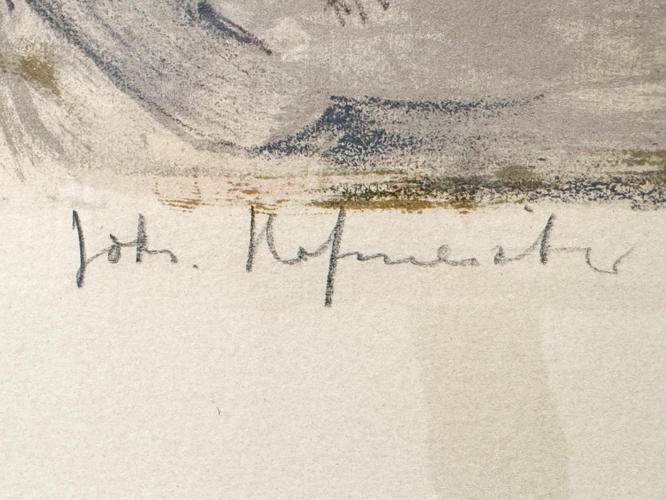 Johs. Hofmeister